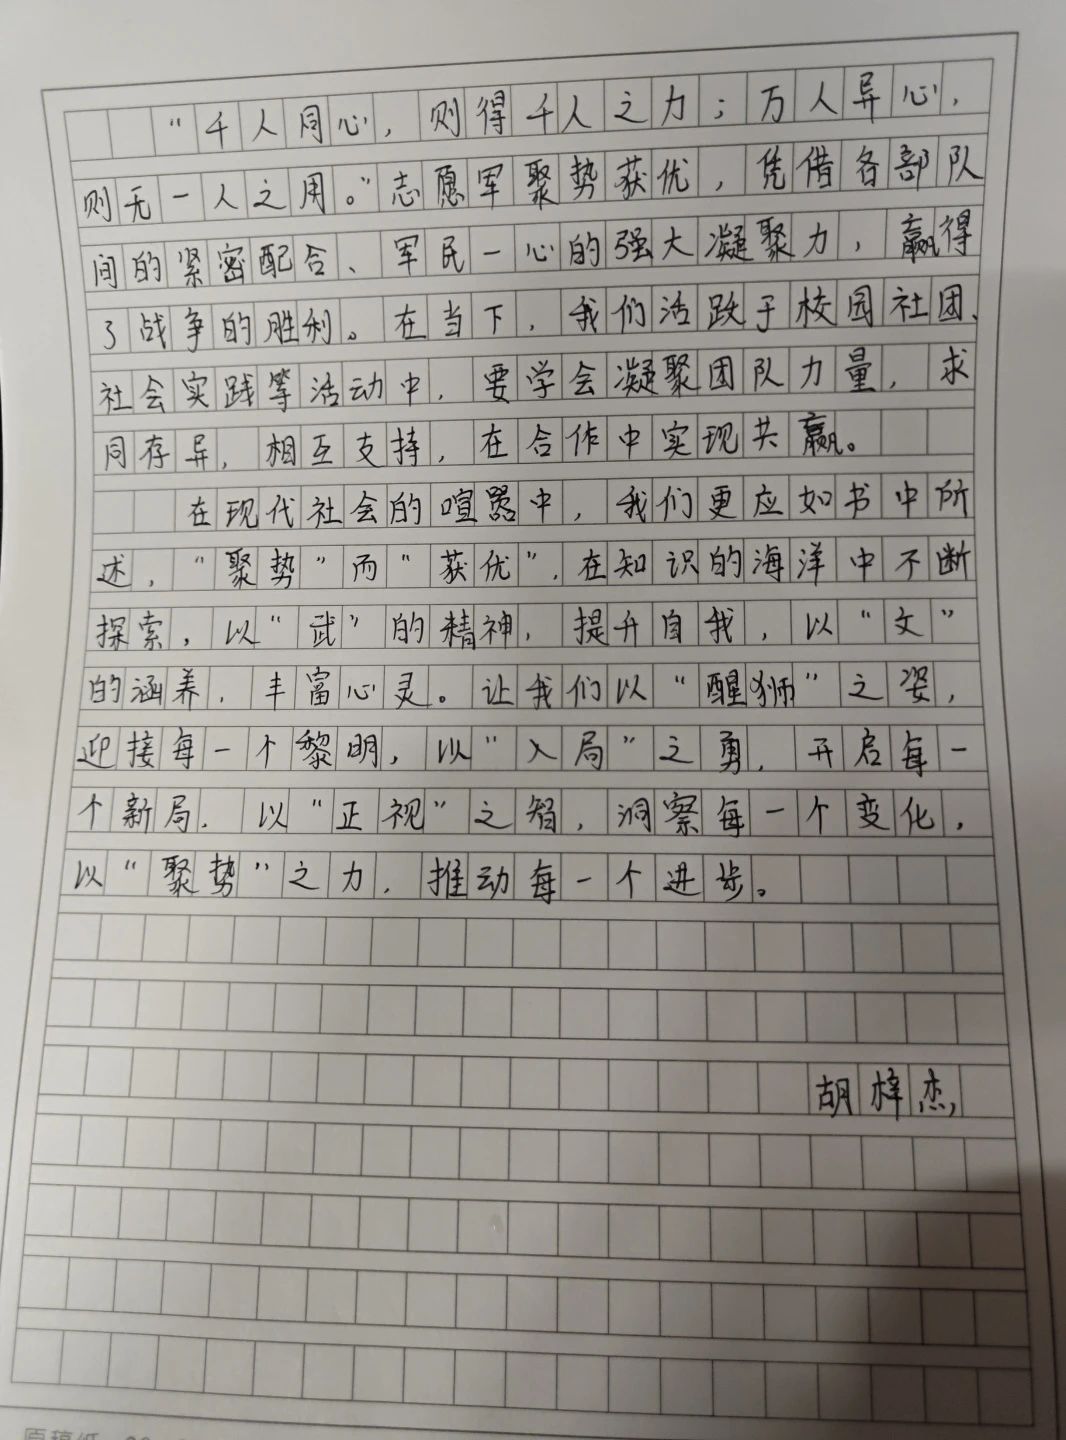 “千人同心，则得千人之力；万人异心，
则无一人之用。”志愿军聚势获优，凭借各部队
间的紧密配合、军民一心的强大凝聚力，赢得
了战争的胜利。在当下，我们活跃于校园社团、
社会实践等活动中，要学会凝聚团队力量，求
同存异，相互支持，在合作中实现共赢。
在现代社会的喧嚣中，我们更应如书中所
述，“聚势”而“获优”，在知识的海洋中不断
探索，以“武”的精神，提升自我，以“文”
的涵养，丰富心灵。让我们以“醒狮”之姿，
迎接每一个黎明，以“入局”之勇，开启每一
个新局，以“正视”之智，洞察每一个变化，
以“聚势”之力，推动每一个进步。
胡梓杰